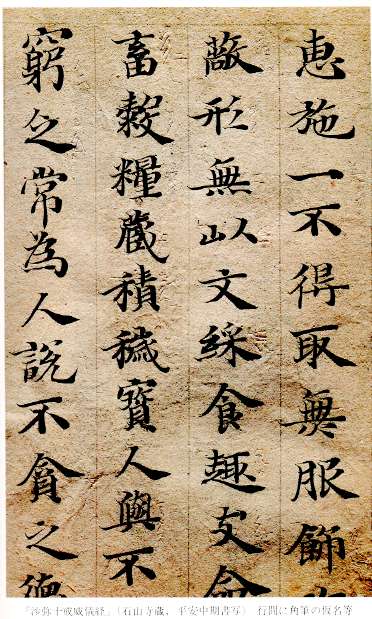 惠施一不得取無服飾
蔽形無以文綵食趣支命
畜穀糧蔵積穢寶人與不
窮乏常為人說不貪之德
「沙弥十戒威儀経」(石山寺蔵、平安中期書写) 行間に角筆の仮名等